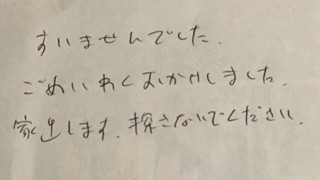 すいませんでした.
ごめいわくおかけしました.
家出します.探さないでください.